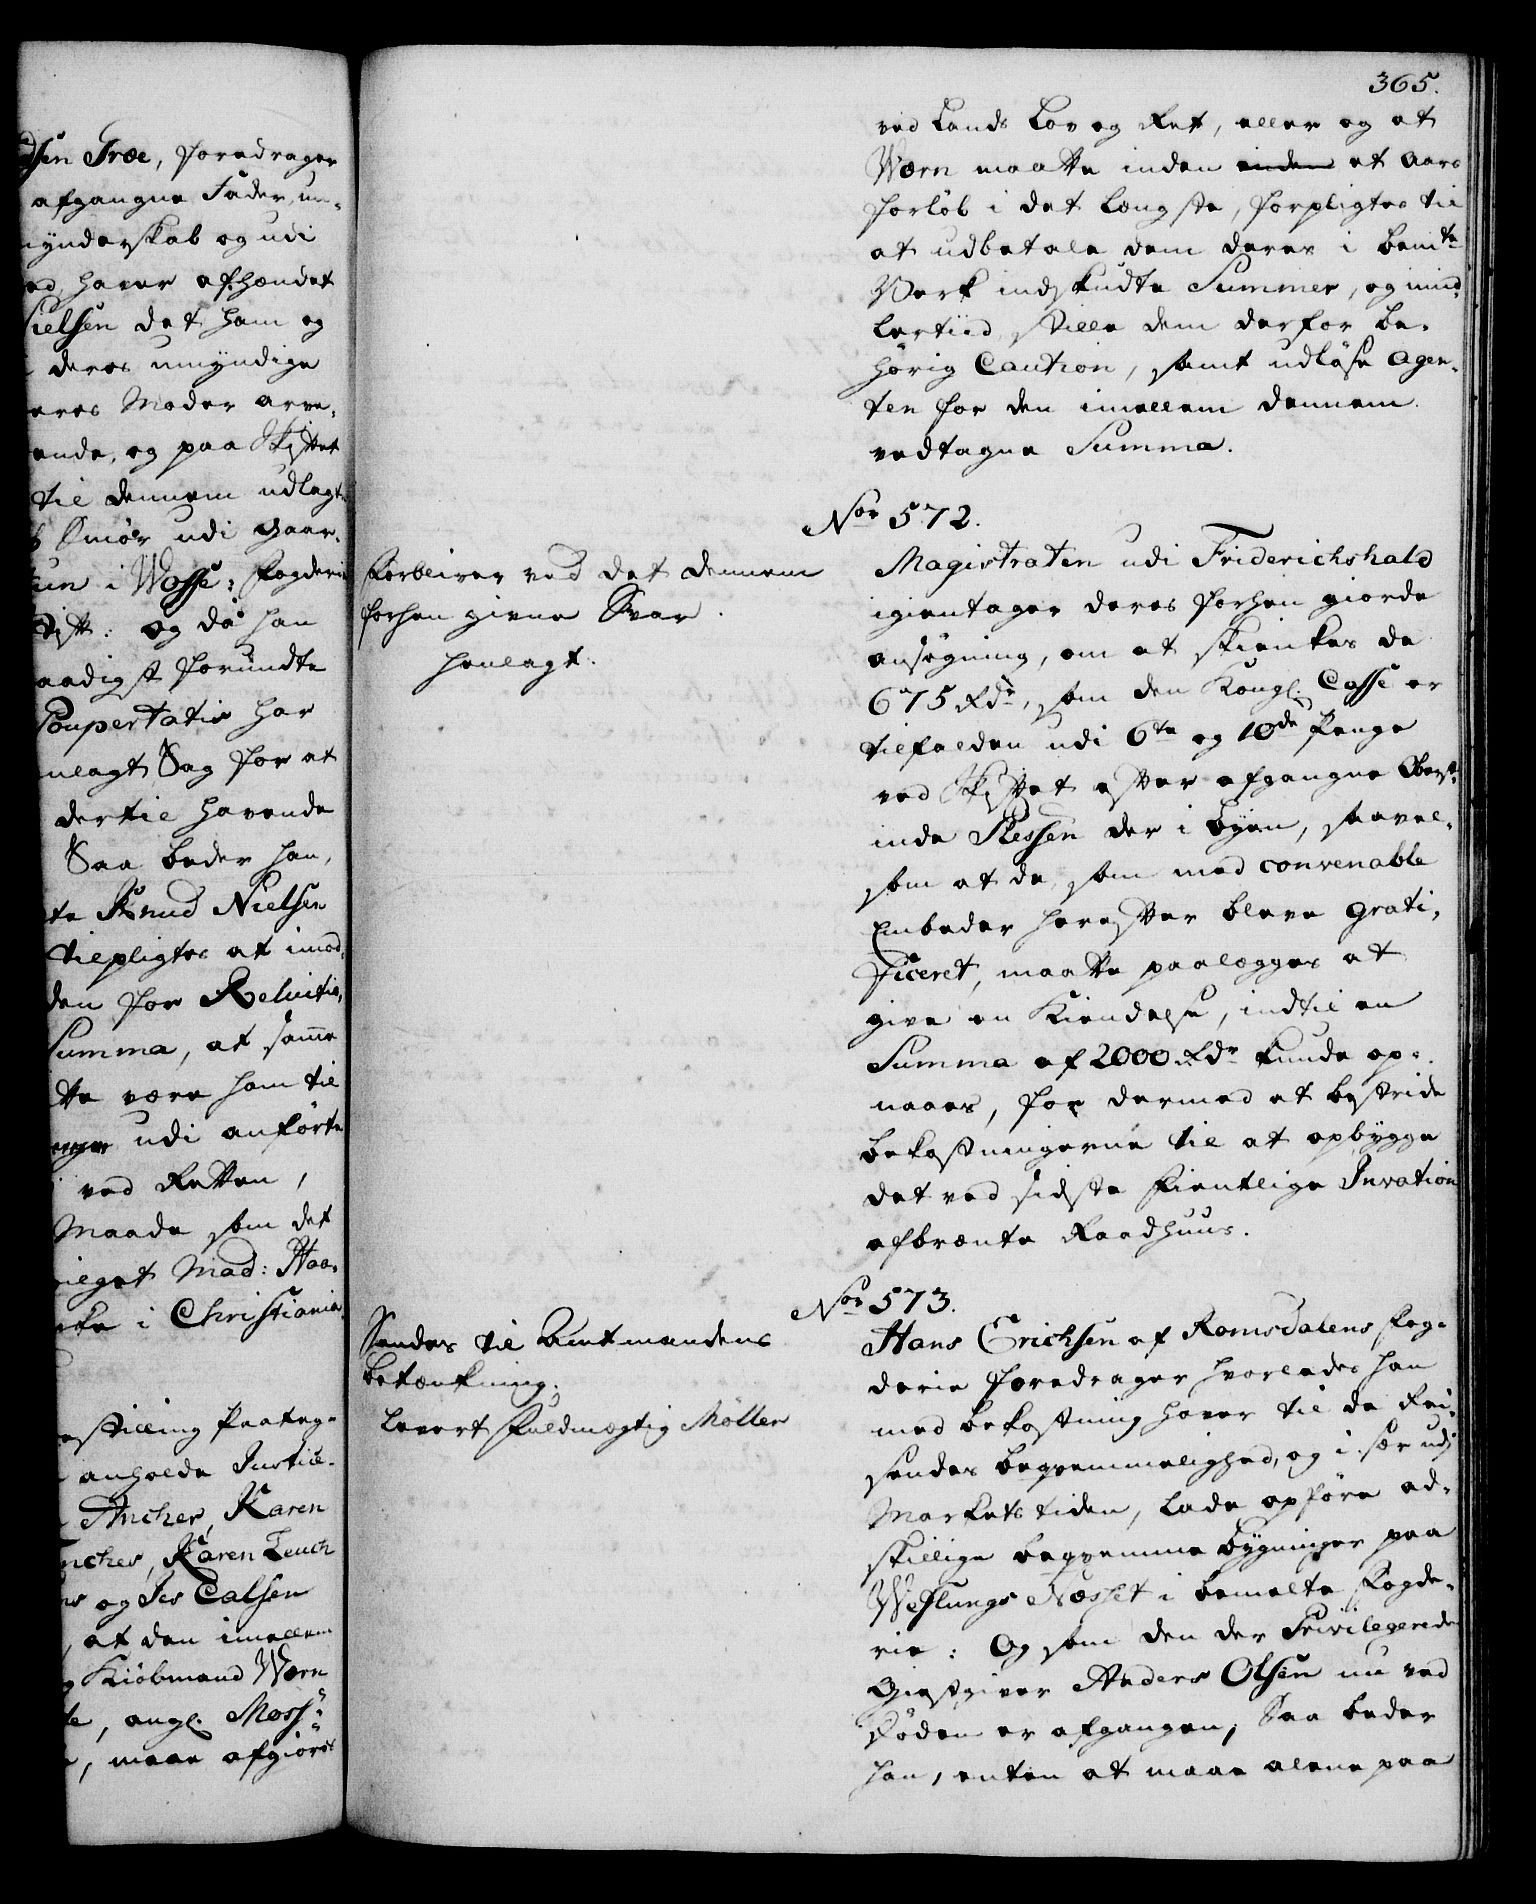 dsen Træe, foredrager
afgangne Fader, un-
mynderskab og udi
ed, haver afhændet
Nielsen det ham og
deres umyndige
eres Moder arve-
ende, og paa Skiftet
til dennem udlagt
Smör udi Gaar-
i Wosse: Fogderi
Stift: og da han
aadigst forundte
Paupertatis har
nlagt Sag for at
dertil havende
Saa beder han,
te Knud Nielsen
tilpligtes at imod
den for Reluitis-
Summa, at samme
tte være ham til
udi anförte
ved Retten,
Maade som det
vilget Mad: Haa-
ke i Christiania
estilling Paateg-
anholde Justice-
Ancher, Karen
ncher, Karen Leuch
og Jes Calsen
, at den imellem
Kiöbmand Wærn
, angl. Moss-
, maae afgiöres
365.
ved Lands Lov og Ret, eller og at
Wærn maatte inden inden et Aars
forlöb i det længste, forpligtes til
at udbetale dem deres i bemte
Verk indskudte Summer, og imid-
lertiid stille dem derfor be-
hörig Caution, samt udlöse Agen-
ten for den imellem dennem
vedtagne Summa.
Nor 572.
Forbliver ved det dennem
forhen givne Svar.
henlagt.
Magistraten udi Friderichshald
igientager deres forhen giorde
ansögning, om at skienkes de
675 Rdr, som den Kongl. Casse er
tilfalden udi 6te og 10de Penge
ved Skiftet efter afgangne Oberst-
inde Plessen der i Byen, saavel-
som at de, som med convenable
Embeder herefter bleve grati-
ficeret, maatte paalægges at
give en Kiendelse, indtil en
Summa af 2000 Rdr kunde op-
naaes, for dermed at bestride
bekostningerne til at opbygge
det ved sidste Fientlige Invation
afbrænte Raadhuus.
Nor 573.
Sendes til Amtmandens
betænkning.
levert Fuldmægtig Möller
Hans Erichsen af Romsdalens Fog-
derie foredrager hvorledes han
med bekostning haver til de Rei-
sendes beqvemmelighed, og i sær udi
Markets tiden, lade opföre ad-
skillige beqvemme bygninger paa
Weflungs Næsset i bemelte Fogde-
rie: Og som den der Privilegerede
Giestgiver Anders Olsen nu ved
Döden er afgangen, Saa beder
han, enten at maae alene paa